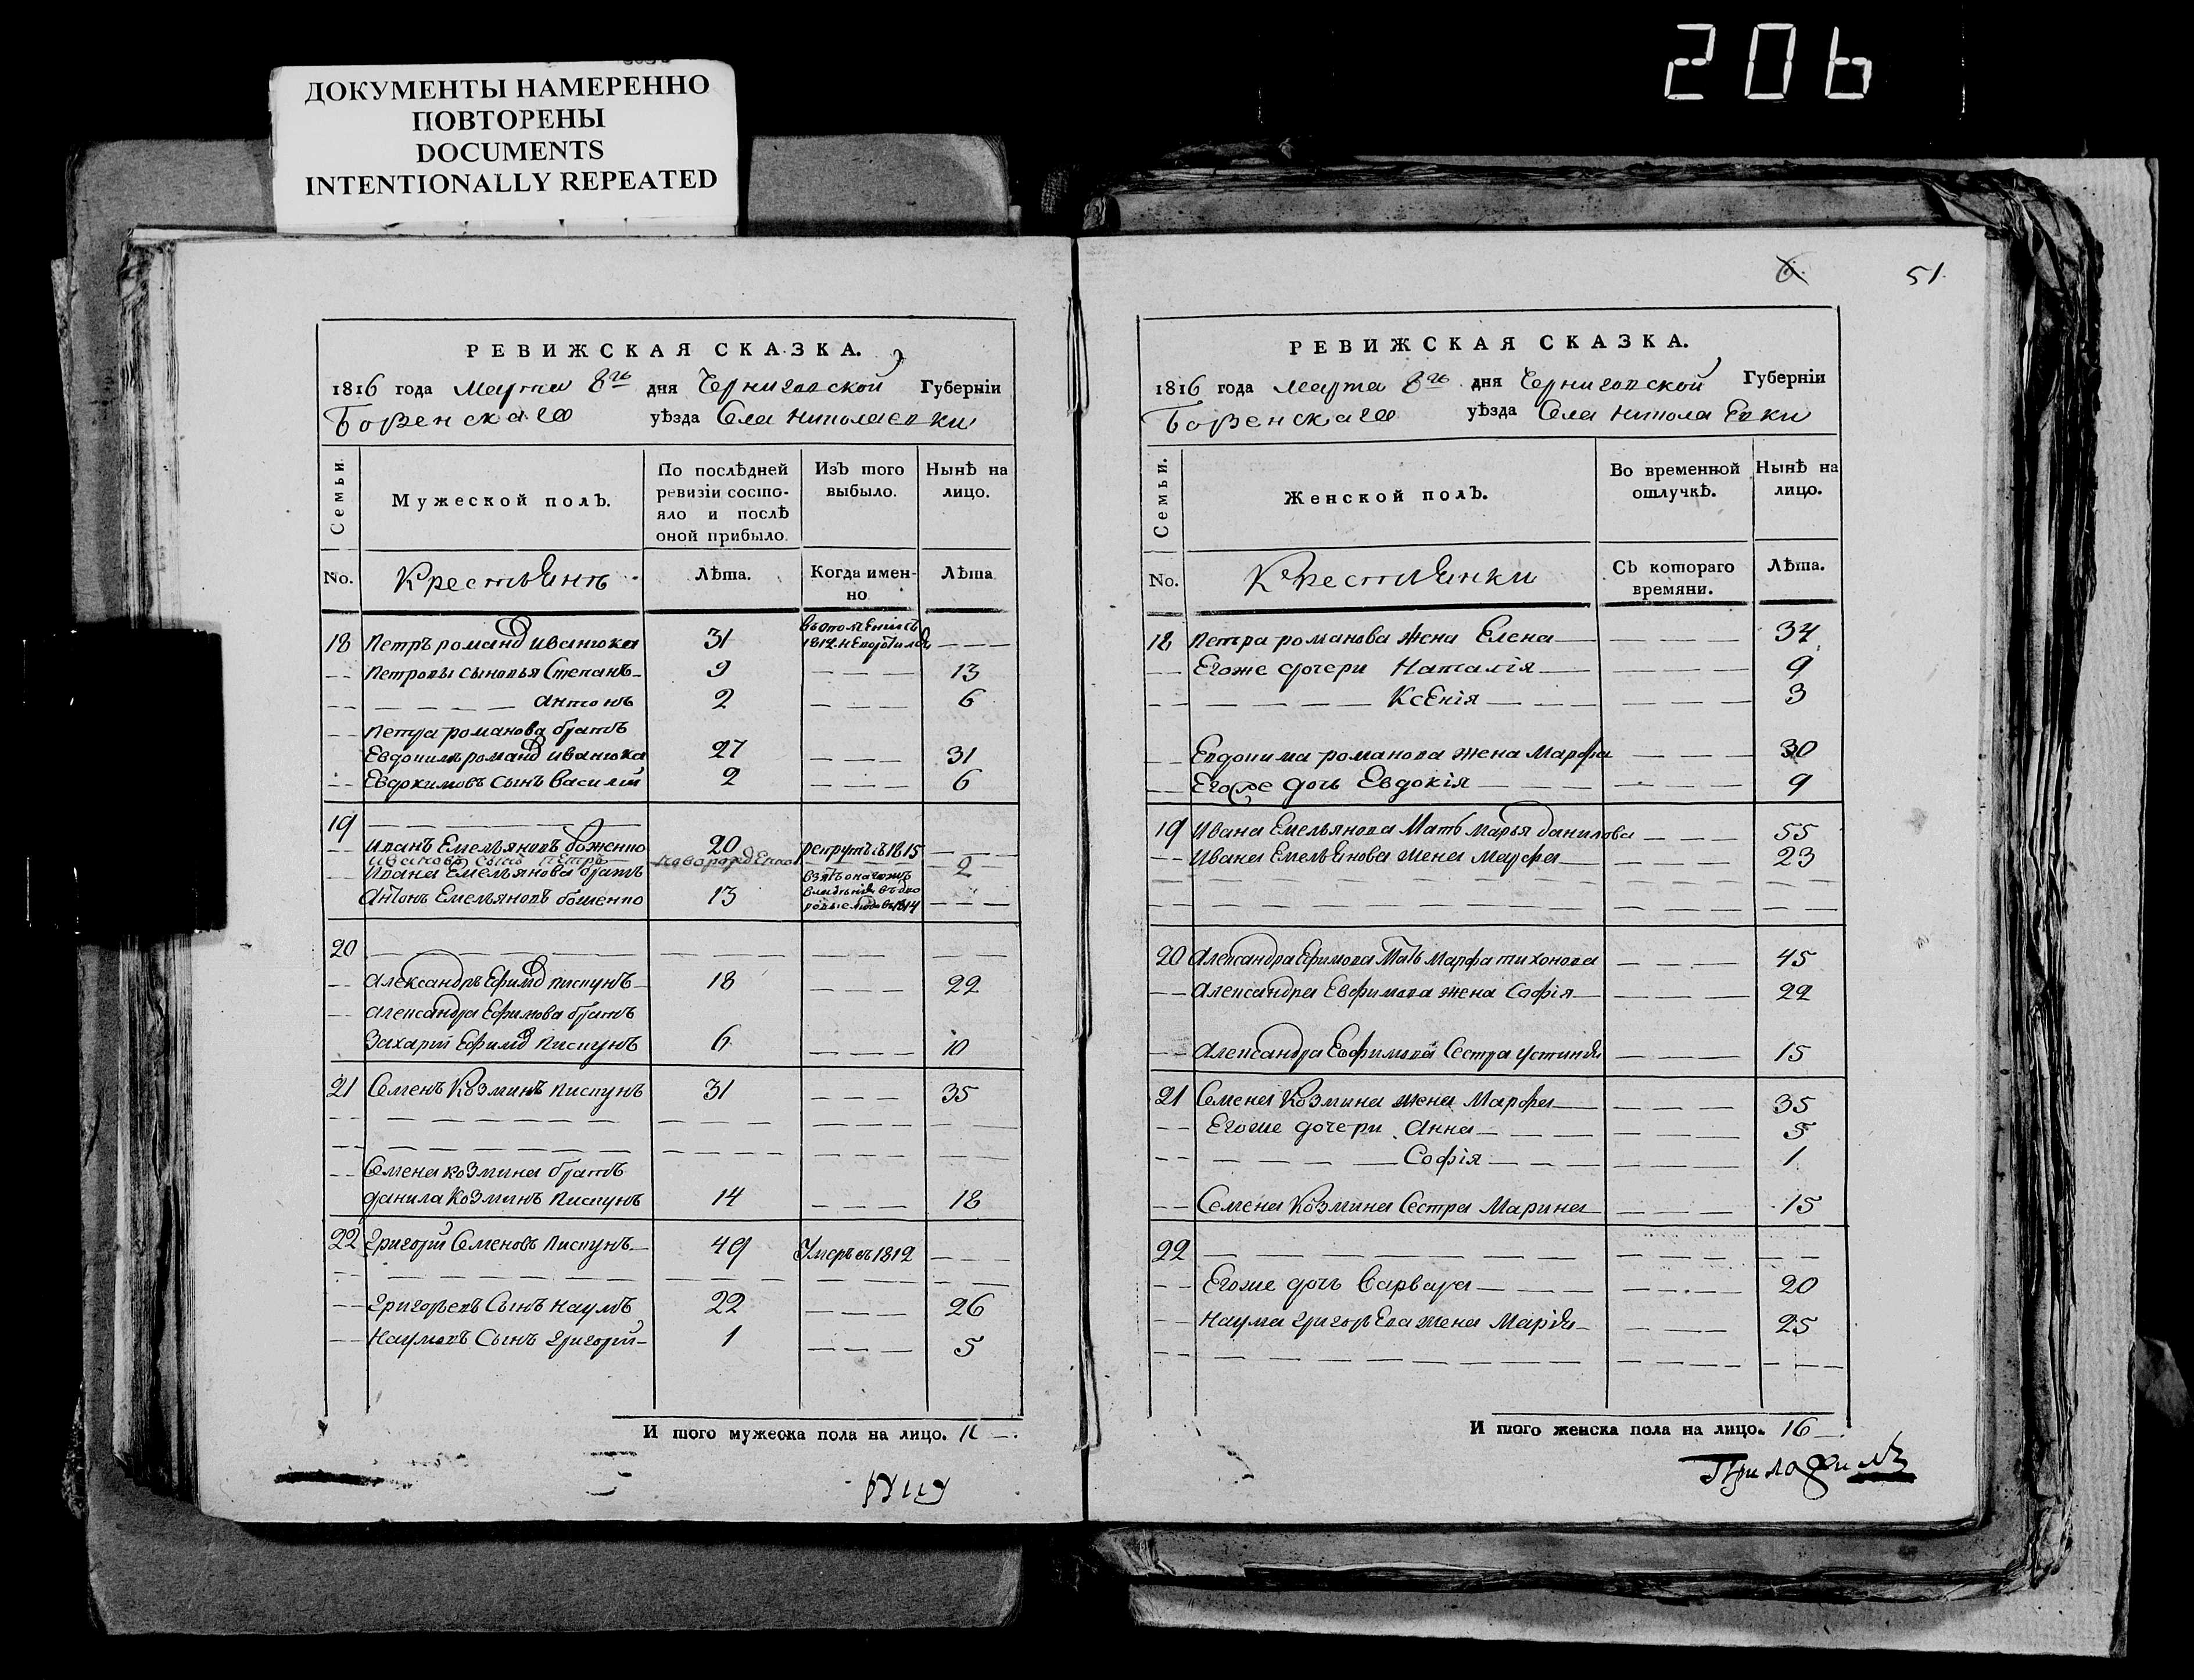 206
ДОКУМЕНТЫ НАМЕРЕННО
ПОВТОРЕНЫ
DOCUMENTS
INTENTIONALLY REPEATED
РЕВИЖСКАЯ СКАЗКА.
1816 года марта 8го дня Черниговской Губерніи
Борзенскаго уѣзда Села Николаевки
Семьи.
Мужеской полъ.
По послѣдней ревизіи состояло и послѣ оной прибыло.
Изъ того выбыло.
Нынѣ на лицо.
No. Крестьянъ Лѣта. Когда именно Лѣта
18 Петръ романов иванюка 31 1812
Петровы сыновья Степанъ 9 13
антонъ 2 6
Петра романова братъ
Евдокимъ романов иванюка 27 31
Евдокимовъ сынъ василій 2 6
19
Иванъ Емельяновъ боженко 20 рекрутъ в 1815
Ивановъ сынъ петръ новорожденной 2
Ивана Емельянова братъ
Антонъ Емельяновъ боженко 13 1814
20
Александръ Ефимов пискунъ 18 22
Александра Ефимова братъ
Захарій Ефимов пискунъ 6 10
21 Семенъ Козминъ пискунъ 31 35
Семена козмина братъ
данила Козминъ пискунъ 14 18
22 григорій Семеновъ пискунъ 49 Умеръ въ 1812
григорьевъ Сынъ наумъ 22 26
Наумовъ Сынъ григорій 1 5
И того мужеска пола на лицо. 11
руку
6.
51.
РЕВИЖСКАЯ СКАЗКА.
1816 года марта 8го дня Черниговской Губерніи
Борзенскаго уѣзда Села николаевки
Семьи.
Женской полъ.
Во временной отлучкѣ.
Нынѣ на лицо.
No. Крестьянки Съ котораго времяни. Лѣта.
18 Петра романова жена Елена 34
Егоже дочери Наталія 9
Ксенія 3
Евдокима романова жена марфа 30
Егоже дочь Евдокія 9
19 Ивана Емельянова Мать марья данилова 55
Ивана Емельянова жена марфа 23
20 Александра Ефимова Мать Марфа тихонова 45
Александра Евфимова жена Софія 22
Александра Евфимова Сестра устинья 15
21 Семена Козмина жена Марфа 35
Егоже дочери Анна 5
Софія 1
Семена Козмина Сестра Марина 15
22
Егоже дочь варвара 20
Наума григорьева жена Марія 25
И того женска пола на лицо. 16
Приложилъ